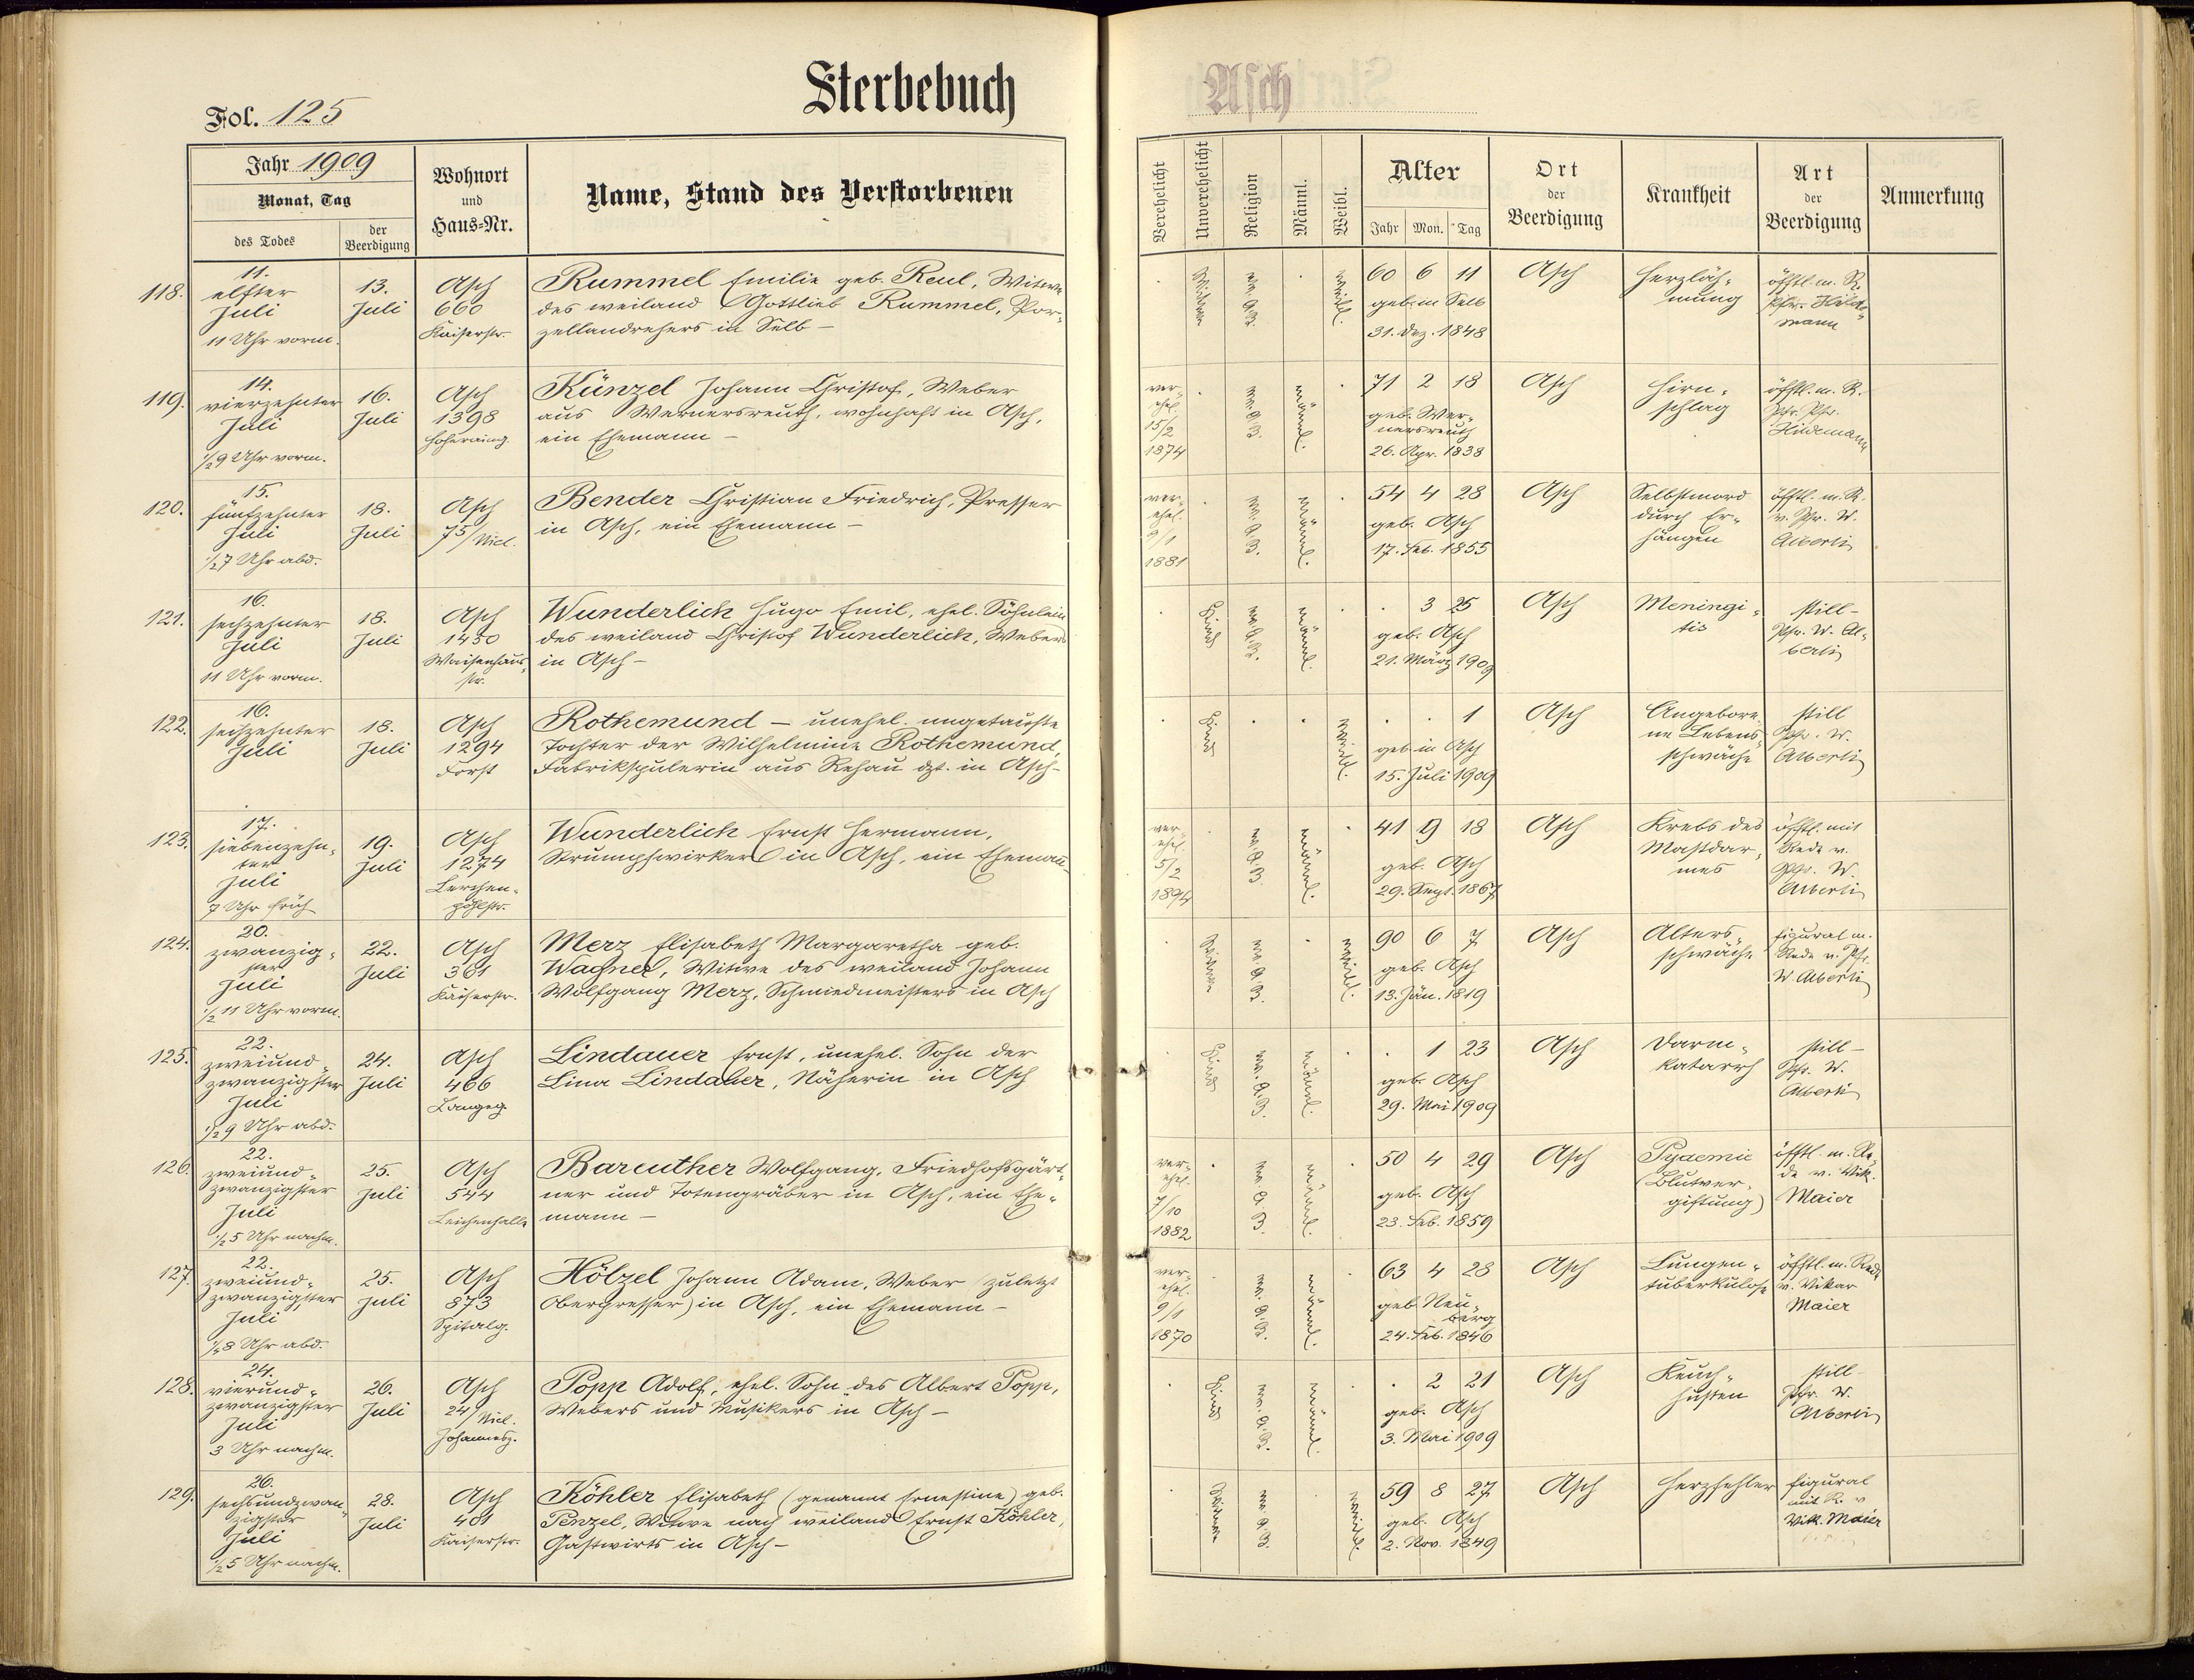 Sterbebuch
Asch
Fol. 125
Jahr 1909
Monat, Tag
des Todes
der Beerdigung
Wohnort
und
Haus-Nr.
Name, Stand des Verstorbenen
Verehelicht
Unverehelicht
Religion
Männl.
Weibl.
Alter
Jahr Mon. Tag
Ort
der
Beerdigung
Krankheit
Art
der
Beerdigung
Anmerkung
118.
11.
elfter
Juli
11 Uhr vorm.
13.
Juli
Asch
660
Kaiserstr.
Rummel Emilie geb. Reul, Witwe
des weiland Gottlieb Rummel, Por-
zellandrehers in Selb –
Witwe
ev. A. B.
weibl.
60 6 11
geb. in Selb
31. Dez. 1848
Asch
Herzläh-
mung
öfftl. m. R.
Pfr. Hilde-
mann
119.
14.
vierzehnter
Juli
1/2 9 Uhr vorm.
16.
Juli
Asch
1398
Künzel Johann Christof, Weber
aus Wernersreuth, wohnhaft in Asch,
ein Ehemann –
ver-
ehel.
15/2
1874
ev. A. B.
männl.
71 2 18
geb. Wer-
nersreuth
26. Apr. 1838
Asch
Hirn-
schlag
öfftl. m. R.
Hildemann
120.
15.
fünfzehnter
Juli
1/2 7 Uhr abd.
18.
Juli
Asch
75/Nicl.
Bender Christian Friedrich, Presser
in Asch, ein Ehemann –
ver-
ehel.
9/1
1881
ev. A. B.
männl.
54 4 28
geb. Asch
17. Feb. 1855
Asch
Selbstmord
durch Er-
hängen
öfftl. m. R.
v. Pfr. W.
Alberti
121.
16.
sechzehnter
Juli
11 Uhr vorm.
18.
Juli
Asch
1430
Waisenhaus-
str.
Wunderlich Hugo Emil, ehel. Söhnlein
des weiland Christof Wunderlich, Webers
in Asch –
Kind
ev. A. B.
männl.
3 25
geb. Asch
21. März 1909
Asch
Meningi-
tis
still –
Pfr. W. Al-
berti
122.
16.
sechzehnter
Juli
18.
Juli
Asch
1294
Forst
Rothemund – unehel. ungetaufte
Tochter der Wilhelmine Rothemund,
Fabrikspulerin aus Rehau dzt. in Asch –
Kind
weibl.
1
geb. in Asch
15. Juli 1909
Asch
Angebore-
ne Lebens-
schwäche
still
Pfr. W.
Alberti
123.
17.
siebenzehn-
ter
Juli
7 Uhr früh
19.
Juli
Asch
1274
Lerchen-
pöhlstr.
Wunderlich Ernst Hermann,
Strumpfwirker in Asch, ein Ehemann
ver-
ehel.
5/2
1894
ev. A. B.
männl.
41 9 18
geb. Asch
29. Sept. 1867
Asch
Krebs des
Mastdar-
mes
öfftl. mit
Rede v.
Pfr. W.
Alberti
124.
20.
zwanzig-
ster
Juli
1/2 11 Uhr vorm.
22.
Juli
Asch
381
Kaiserstr.
Merz Elisabeth Margaretha geb.
Wagner, Witwe des weiland Johann
Wolfgang Merz, Schmiedmeisters in Asch
Witwe
ev. A. B.
weibl.
90 6 7
geb. Asch
13. Jän. 1819
Asch
Alters-
schwäche
figural m.
Rede v. Pfr.
W. Alberti
125.
22.
zweiund-
zwanzigster
Juli
1/2 9 Uhr abd.
24.
Juli
Asch
466
Langeg.
Lindauer Ernst, unehel. Sohn der
Lina Lindauer, Näherin in Asch
Kind
ev. A. B.
männl.
1 23
geb. Asch
29. Mai 1909
Asch
Darm-
katarrh
still –
Pfr. W.
Alberti
126.
22.
zweiund-
zwanzigster
Juli
1/2 5 Uhr nachm.
25.
Juli
Asch
544
Leichenhalle
Bareuther Wolfgang, Friedhofsgärt-
ner und Totengräber in Asch, ein Ehe-
mann –
ver-
ehel.
7/10
1882
ev. A. B.
männl.
50 4 29
geb. Asch
23. Feb. 1859
Asch
Pyaemie
(Blutver-
giftung)
öfftl. m. Re-
de v. Vik.
Maier
127.
22.
zweiund-
zwanzigster
Juli
Uhr abd.
25.
Juli
Asch
873
Spitalg.
Hölzel Johann Adam, Weber (zuletzt
Oberpresser) in Asch, ein Ehemann –
ver-
ehel.
9/1
1870
ev. A. B.
männl.
63 4 28
geb. Neu-
berg
24. Feb. 1846
Asch
Lungen-
tuberkulose
öfftl. m. Rede
v. Vikar
Maier
128.
24.
vierund-
zwanzigster
Juli
3 Uhr nachm.
26.
Juli
Asch
24/Nicl.
Johannesg.
Popp Adolf, ehel. Sohn des Albert Popp,
Webers und Musikers in Asch –
Kind
ev. A. B.
männl.
2 21
geb. Asch
3. Mai 1909
Asch
Keuch-
husten
still –
Pfr. W.
Alberti
129.
26.
sechsundzwan-
zigster
Juli
1/2 5 Uhr nachm.
28.
Juli
Asch
401
Kaiserstr.
Köhler Elisabeth (genannt Ernestine) geb.
Penzel, Witwe nach weiland Ernst Köhler,
Gastwirts in Asch –
Witwe
ev. A. B.
weibl.
59 8 27
geb. Asch
2. Nov. 1849
Asch
Herzfehler
figural
mit R. v
Vik. Maier